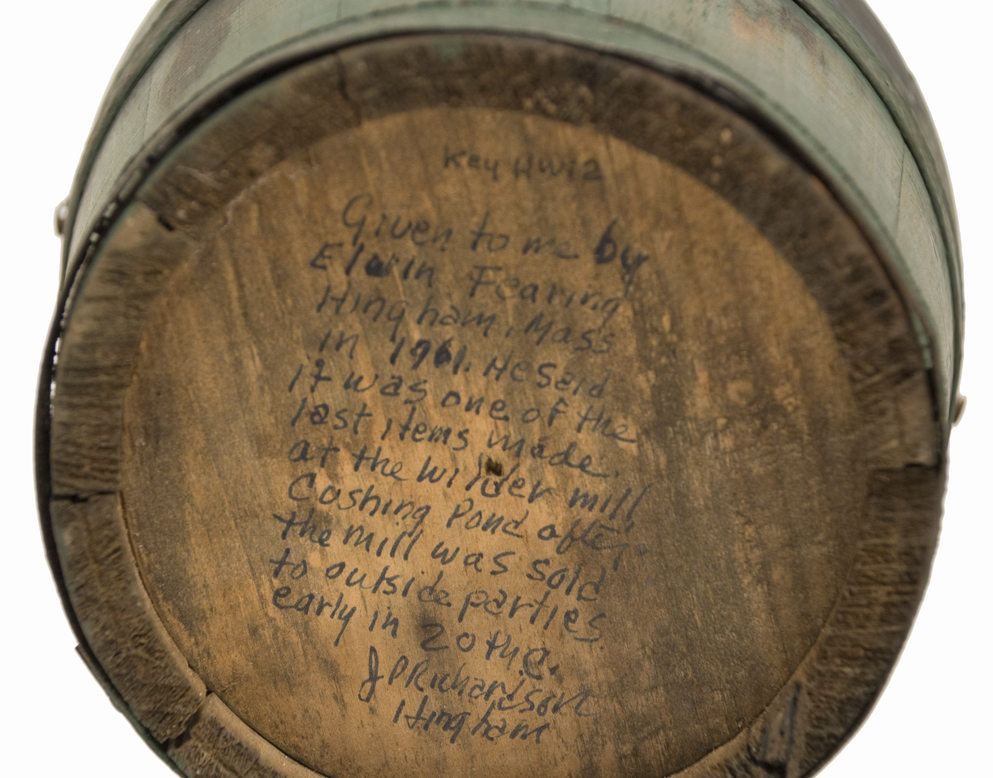 Key HW12
Given to me by
Elwin Fearing
Hingham, Mass
in 1961. He said
it was one of the
last items made
at the wilder mill
Cushing Pond after
the mill was sold
to outside parties
early in 20th c.
J P Richardson
Hingham